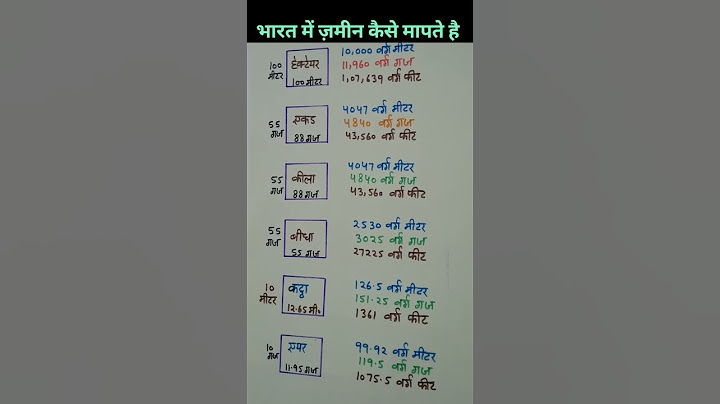 भारत में ज़मीन कैसे मापते है
100 मीटर
हेक्टेयर
100 मीटर
10,000 वर्ग मीटर
11,960 वर्ग गज
1,07,639 वर्ग फीट
55 गज
एकड
88 गज
4047 वर्ग मीटर
4840 वर्ग गज
43,560 वर्ग फीट
55 गज
कीला
88 गज
4047 वर्ग मीटर
4840 वर्ग गज
43,560 वर्ग फीट
55 गज
बीघा
55 गज
2530 वर्ग मीटर
3025 वर्ग गज
27225 वर्ग फीट
10 मीटर
कट्ठा
12.65 मी०
126.5 वर्ग मीटर
151.25 वर्ग गज
1361 वर्ग फीट
10 गज
एयर
11.95 गज
99.92 वर्ग मीटर
119.5 वर्ग गज
1075.5 वर्ग फीट